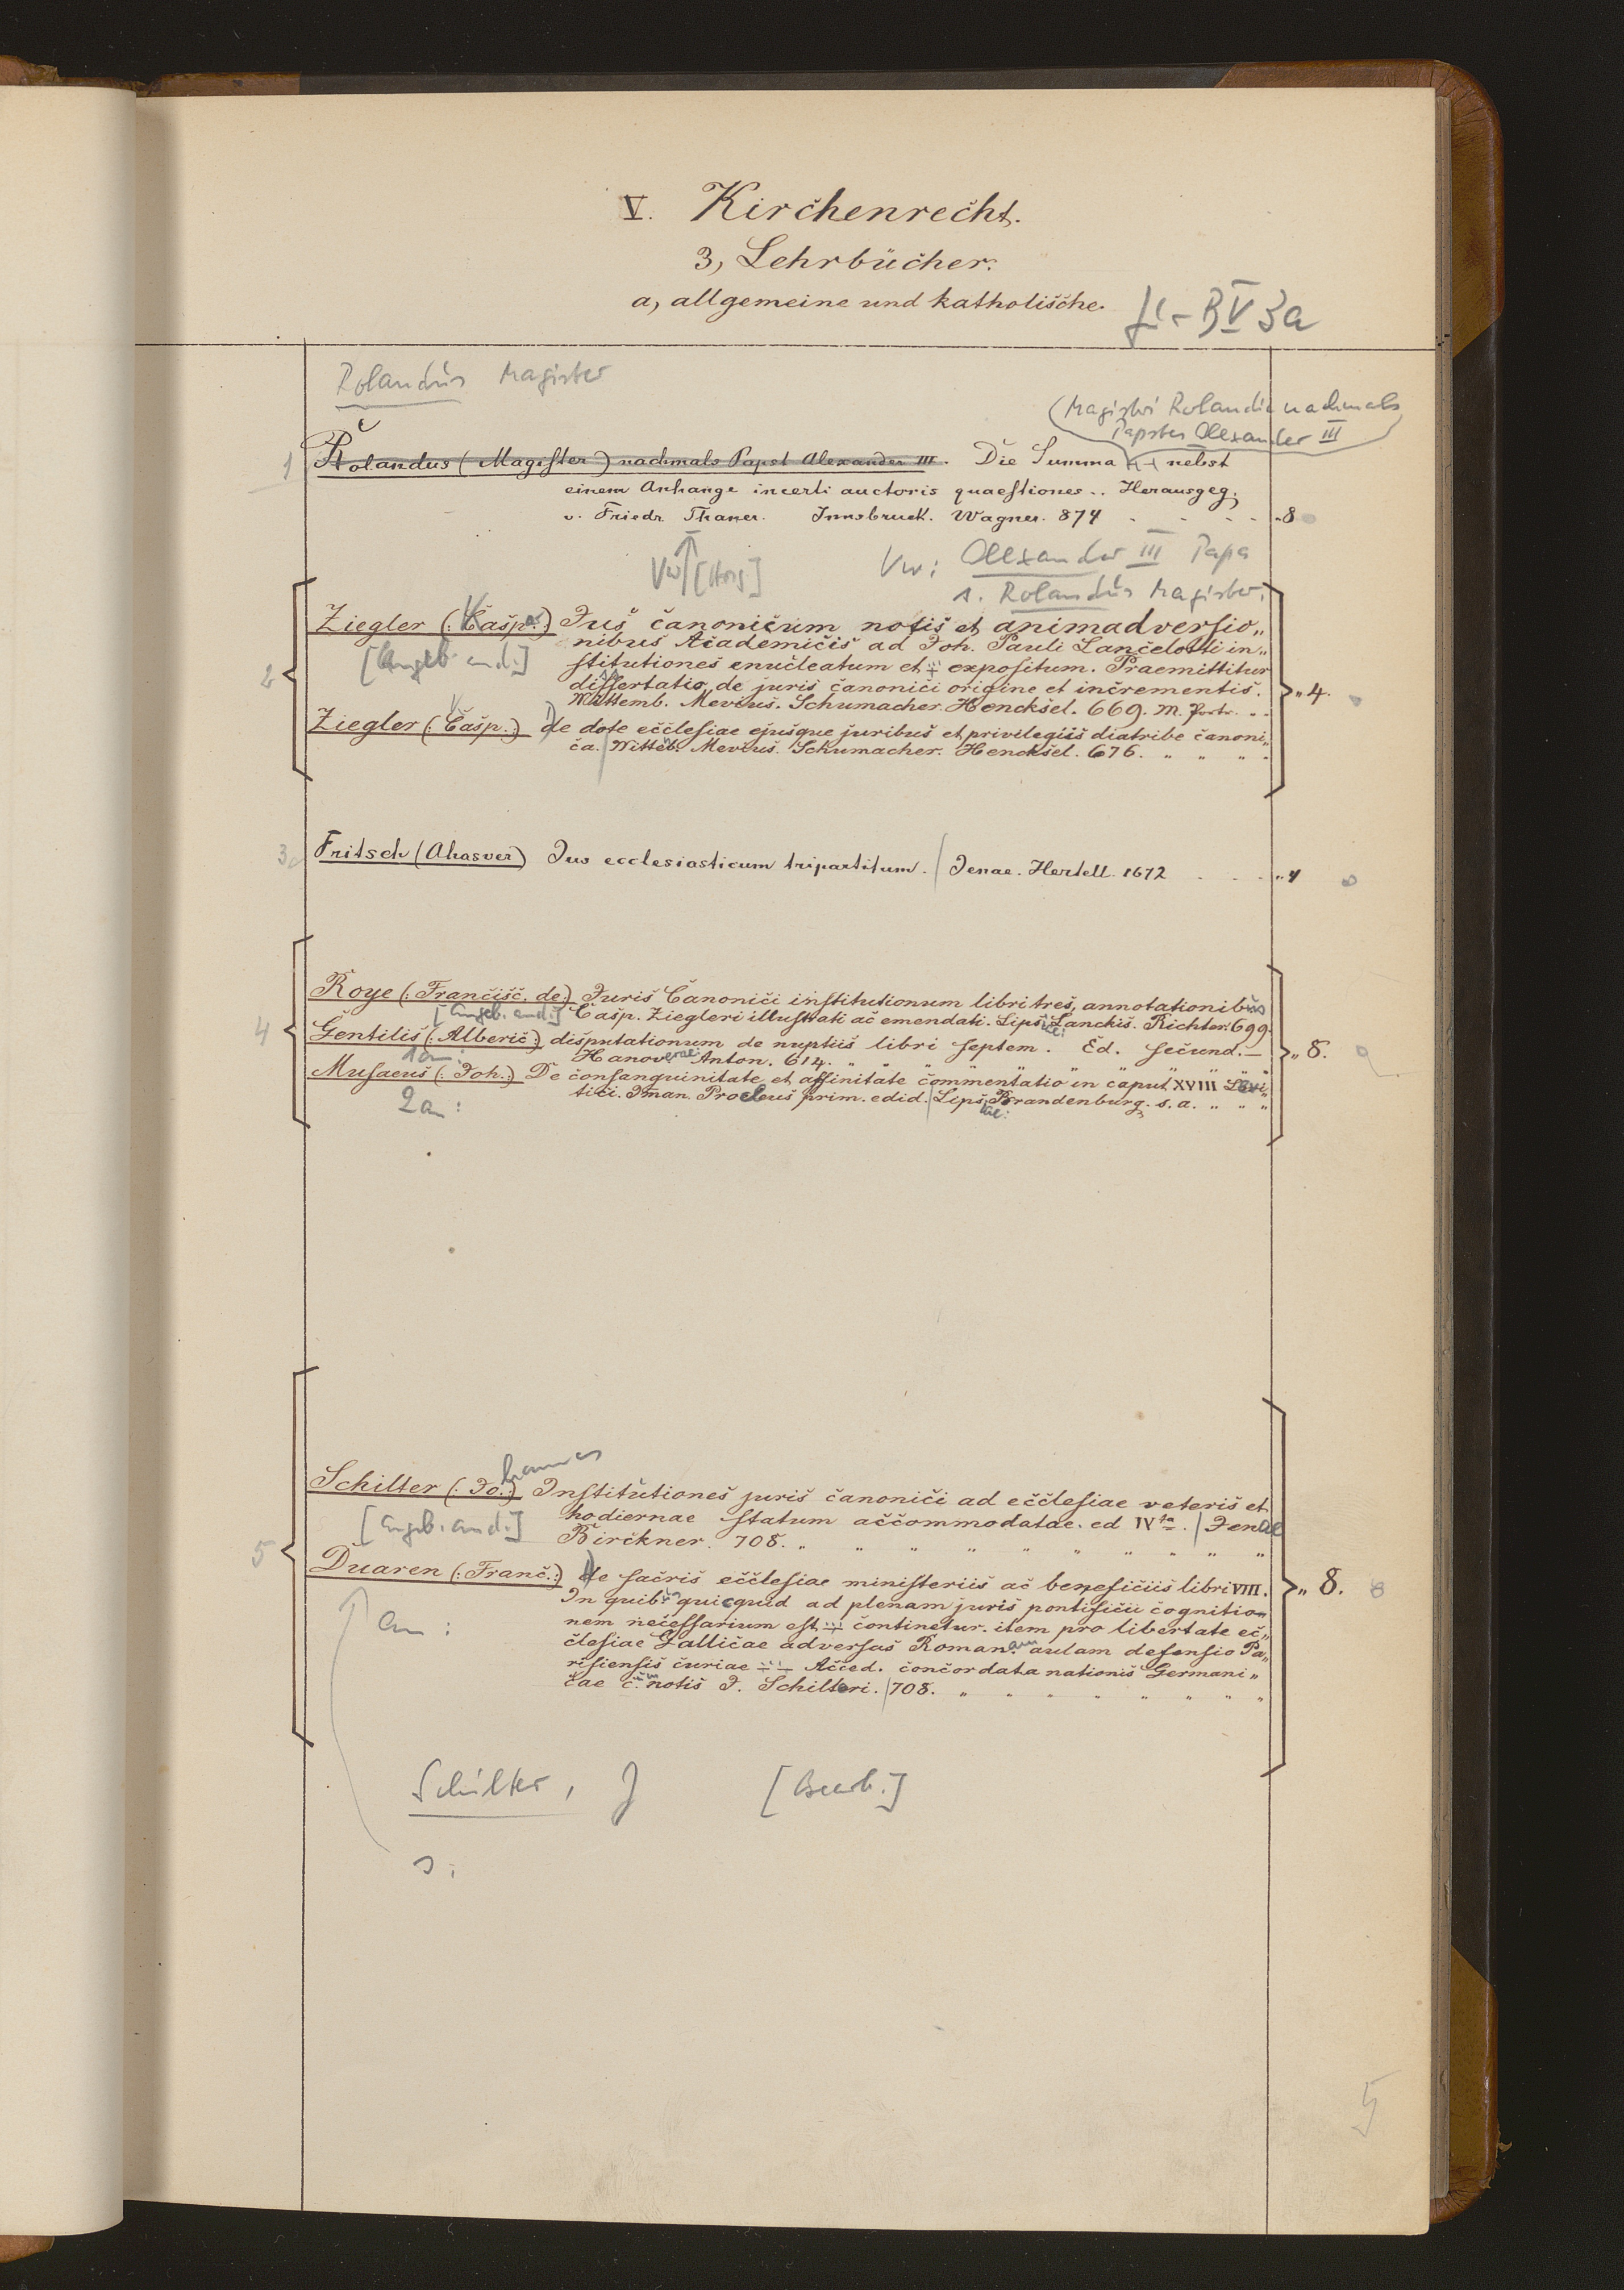 V. Kirchenrecht.
3, Lehrbücher.
a, allgemeine und katholische.
B V 3a
Rolandus Magister
(Magistri Rolandi nachmals
Papstes Alexander III)
1 Rolandus (Magister) nachmals Papst Alexander III. Die Summa nebst
einem Anhange incerti auctoris quaestiones.. Herausgeg.
v. Friedr. Thaner. Innsbruck. Wagner. 874 . . . . "8
Vw [Hrsg]
Vw: Alexander III Papa
s. Rolandus Magister.
2 Ziegler (: Casp. :) Jus canonicum notis et animadversio„
[Angeb. and.]
nibus Academicis ad Joh. Pauli Lancelotti in„
stitutiones enucleatum et ÷ expositum. Praemittitur
dissertatio de juris canonici origine et incrementis.
Wittemb. Mevius. Schumacher. Henckel. 669. m. Portr. .. „4.
Ziegler (: Casp. :) De dote ecclesiae ejusque juribus et privilegiis diatribe canoni„
ca. | Witteb. Mevius. Schumacher. Henckel. 676. „ „ „ „
3 Fritsch (Ahasver) Jus ecclesiasticum tripartitum. | Jenae. Hertell. 1672 . . . "4
4 Roye (: Francisc. de) Juris Canonici institutionum libri tres, annotationibus
[Angeb. and.] Casp. Ziegleri illustrati ac emendati. Lipsiae: Lanckis. Richter. 699.
Gentilis (: Alberic :) disputationum de nuptiis libri septem. Ed. secund. —
1 an: Hanoverae: Anton. 614. „ „ „ „ „ „ „ „ „ 8.
Musaeus (: Joh. :) De consanguinitate et affinitate commentatio in caput XVIII Levi„
2 an: tici. Iman. Proeleus prim. edid. | Lipsiae: Brandenburg. s. a. „ „ „
5 Schilter (: Johannes :) Institutiones juris canonici ad ecclesiae veteris et
[Angeb. and.] hodiernae statum accommodatae. ed IVta. | Jenae
Birckner. 708. „ „ „ „ „ „ „ „ „
Duaren (: Franc. :) De sacris ecclesiae ministeriis ac beneficiis libri VIII. „ 8.
In quibus quicquid ad plenam juris pontificii cognitio„
an: nem necessarium est ÷ continetur. item pro libertate ec„
clesiae Gallicae adversus Romanam aulam defensio Pa„
risiensis curiae ÷ – Acced. concordata nationis Germani„
cae cum notis J. Schilteri. | 708. „ „ „ „ „ „ „
Schilter, J [Bearb.]
s.
5